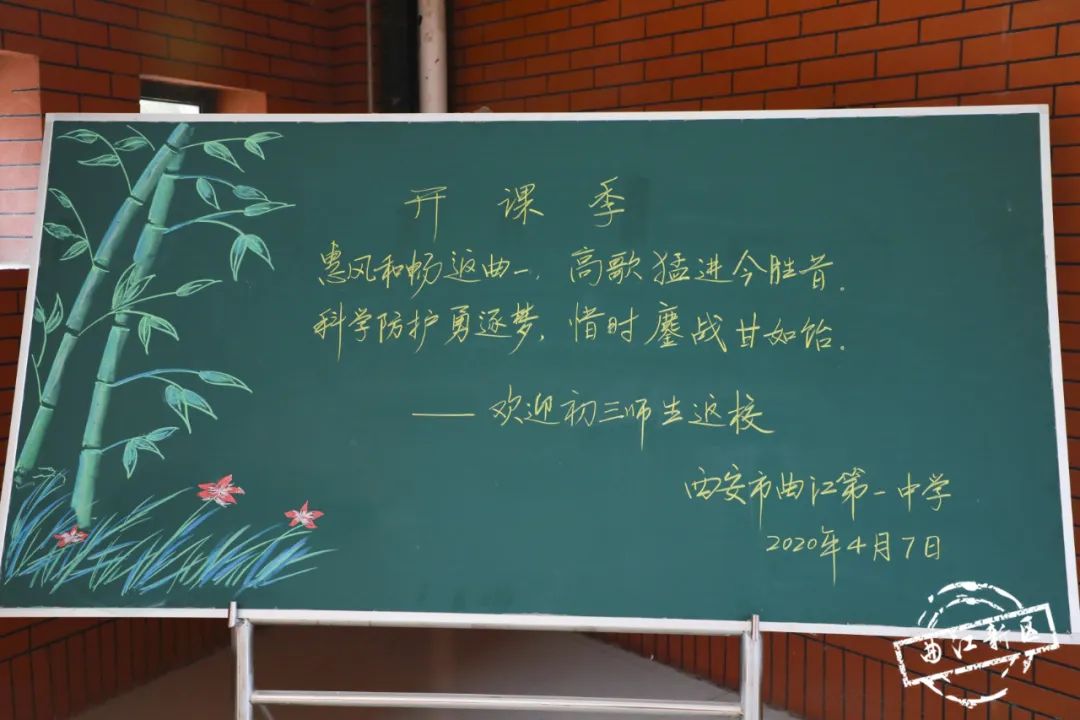 开课季
惠风和畅返曲一，高歌猛进今胜昔。
科学防护勇逐梦，惜时鏖战甘如饴。
——欢迎初三师生返校
西安市曲江第一中学
2020年4月7日
曲江新区